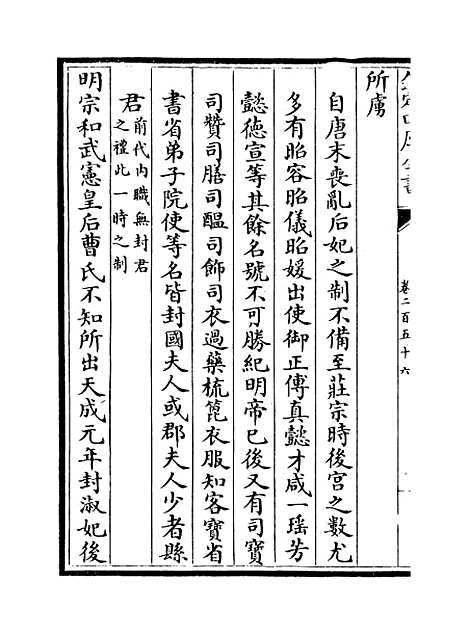 欽定四庫全書
卷二百五十六
所虜
自唐末喪亂后妃之制不備至莊宗時後宮之數尤
多有昭容昭儀昭媛出使御正傅真懿才咸一瑶芳
懿德宣等其餘名號不可勝紀明帝已後又有司寶
司贊司膳司醖司飾司衣過藥梳篦衣服知客寶省
書省弟子院使等名皆封國夫人或郡夫人少者縣
君前代内職無封君
之禮此一時之制
明宗和武憲皇后曹氏不知所出天成元年封淑妃後